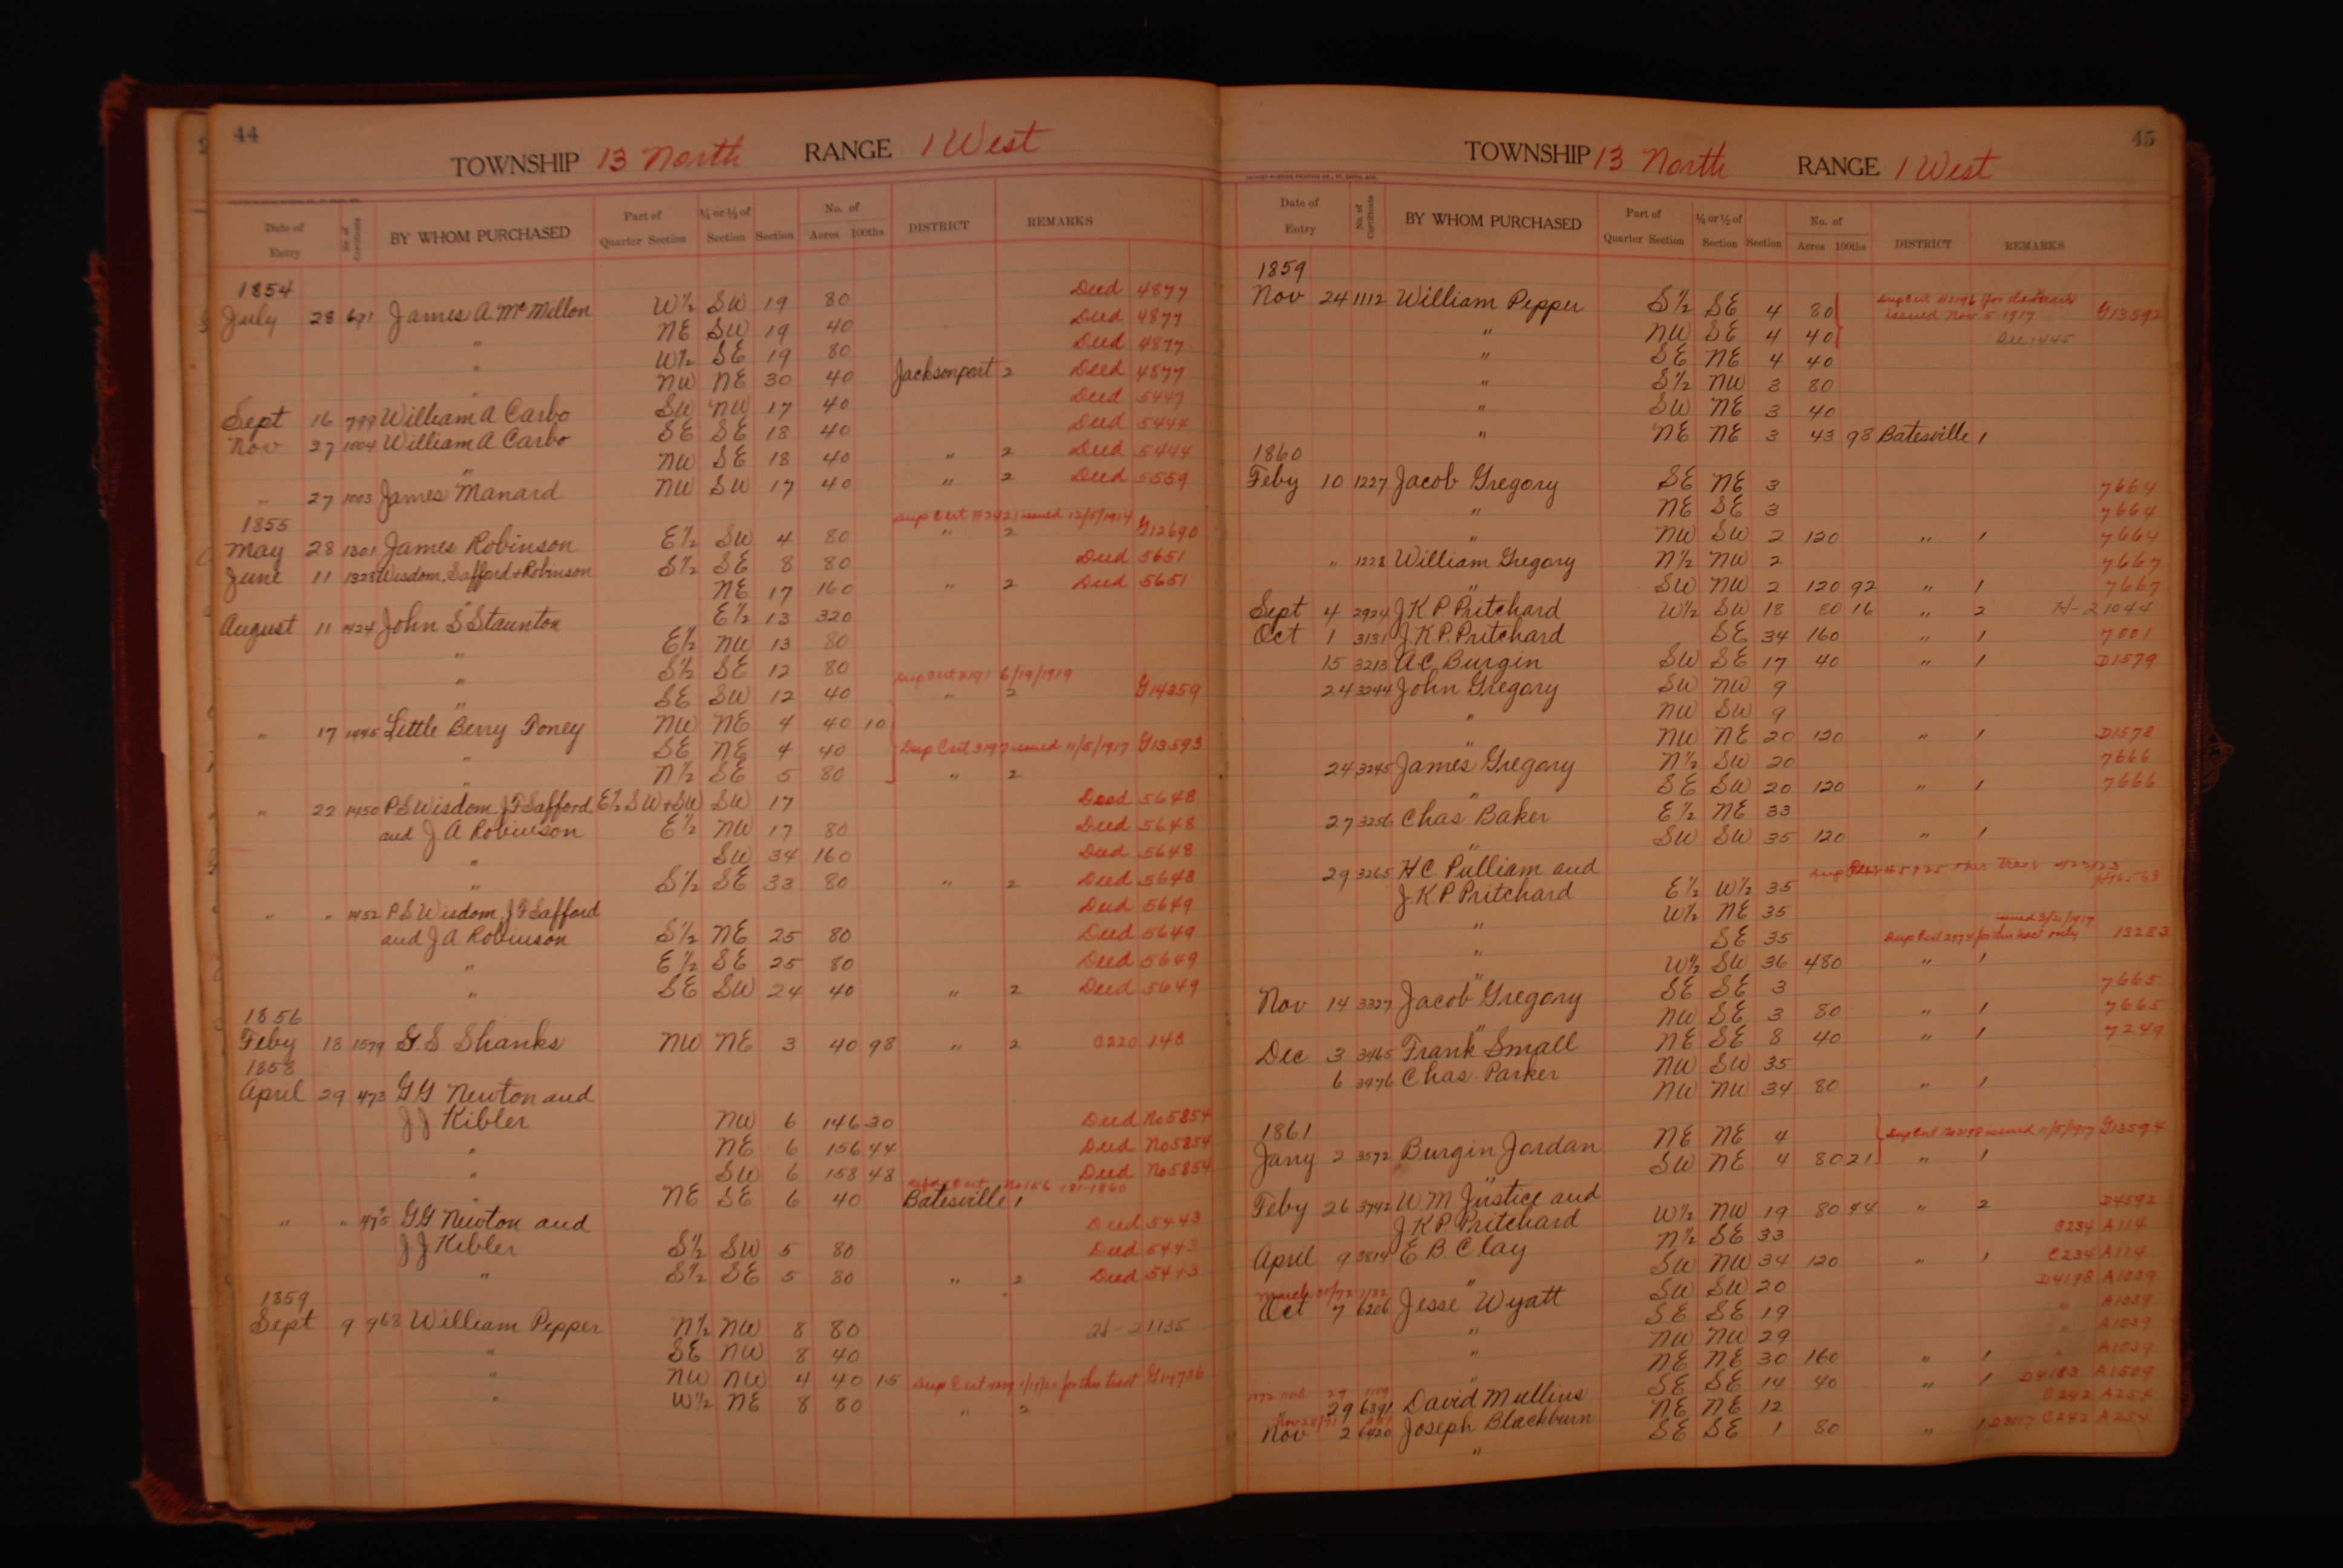 44
TOWNSHIP 13 North RANGE 1 West
Date of Entry No. of Certificate BY WHOM PURCHASED Part of Quarter Section ¼ or ½ of Section Section No. of Acres 100ths DISTRICT REMARKS
1854
July 28 691 James A. McMillon W½ SW 19 80 Deed 4877
" NE SW 19 40 Deed 4877
" W½ SE 19 80 Deed 4877
" NW NE 30 40 Jacksonport 2 Deed 4877
Sept 16 799 William A Carbo SW NW 17 40 Deed 5447
Nov 27 1004 William A Carbo SE SE 18 40 Deed 5444
" NW SE 18 40 " 2 Deed 5444
" 27 1003 James Manard NW SW 17 40 " 2 Deed 5559
1855 Dup Cert #2421 issued 12/5/1914
May 28 1301 James Robinson E½ SW 4 80 " 2 G12690
June 11 1328 Wisdom, Safford + Robinson S½ SE 8 80 Deed 5651
" NE 17 160 " 2 Deed 5651
August 11 1424 John S Staunton E½ 13 320
" E½ NW 13 80
" S½ SE 12 80 Dup Cert 2191 6/19/1919
" SE SW 12 40 " 2 G14259
" 17 1445 Little Berry Toney NW NE 4 40 10
" SE NE 4 40 Dup Cert 3197 issued 11/5/1917 G13593
" N½ SE 5 80 " 2
" 22 1450 P S Wisdom, J F Safford, E½ SW + SW SW 17 Deed 5648
and J A Robinson E½ NW 17 80 Deed 5648
" SW 34 160 Deed 5648
" S½ SE 33 80 " 2 Deed 5648
" " 1452 P S Wisdom, J F Safford Deed 5649
and J A Robinson S½ NE 25 80 Deed 5649
" E½ SE 25 80 Deed 5649
" SE SW 24 40 " 2 Deed 5649
1856
Feby 18 1579 G. S Shanks NW NE 3 40 98 " 2 C220 148
1858
April 29 473 G G Newton and
J. J Kibler NW 6 146 30 Deed No 5854
" NE 6 156 44 Deed No 5854
" SW 6 158 48 Deed No 5854
" NE SE 6 40 Batesville 1
" " 475 G G Newton and Deed 5443
J J Kibler S½ SW 5 80 Deed 5443
" S½ SE 5 80 " 2 Deed 5443
1859
Sept 9 968 William Pepper N½ NW 8 80 21135
" SE NW 8 40
" NW NW 4 40 15 Dup Cert for this tract G14736
" W½ NE 8 80 " 2
45
TOWNSHIP 13 North RANGE 1 West
Date of Entry No. of Certificate BY WHOM PURCHASED Part of Quarter Section ¼ or ½ of Section Section No. of Acres 100ths DISTRICT REMARKS
1859
Nov 24 1112 William Pepper S½ SE 4 80 Dup Cert #3196 issued Nov 5-1917 G13592
" NW SE 4 40 See 1445
" SE NE 4 40
" S½ NW 3 80
" SW NE 3 40
" NE NE 3 43 98 Batesville 1
1860
Feby 10 1227 Jacob Gregory SE NE 3 7664
" NE SE 3 7664
" NW SW 2 120 " 1 7664
" 1228 William Gregory N½ NW 2 7667
" SW NW 2 120 92 " 1 7667
Sept 4 2924 J K P Pritchard W½ SW 18 80 16 " 2 H-21044
Oct 1 3131 J. K P. Pritchard SE 34 160 " 1 7001
15 3213 A C Burgin SW SE 17 40 " 1 D1579
24 3244 John Gregory SW NW 9
" NW SW 9
" NW NE 20 120 " 1 D1578
24 3245 James Gregory N½ SW 20 7666
" SE SW 20 120 " 1 7666
27 3256 Chas Baker E½ NE 33
" SW SW 35 120 " 1
29 3265 H C Pulliam and
J K P Pritchard E½ W½ 35
" W½ NE 35 issued 3/21/1917
" SE 35 Dup Cert 2974 for this tract only 13283
" W½ SW 36 480 " 1
Nov 14 3327 Jacob Gregory SE SE 3 7665
" NW SE 3 80 " 1 7665
Dec 3 3465 Frank Small NE SE 8 40 " 1 7249
6 3476 Chas. Parker NW SW 35
NW NW 34 80 " 1
1861
Jany 2 3572 Burgin Jordan NE NE 4 Dup Cert No 3198 issued 11/5/1917 G13594
" SW NE 4 80 21 " 1
Feby 26 3742 W M Justice and
J K P Pritchard W½ NW 19 80 44 " 2 D4592
April 9 3814 E B Clay N½ SE 33 C234 A114
" SW NW 34 120 " 1 C234 A114
Oct 7 6206 Jesse Wyatt SW SW 20 D4198 A1039
" SE SE 19 " A1039
" NW NW 29 " A1039
" NE NE 30 160 " 1 " A1039
29 6391 David Mullins SE SE 14 40 " 1 D4183 A1509
Nov 2 6420 Joseph Blackburn NE NE 12 C242 A254
" SE SE 1 80 " 1 C242 A254